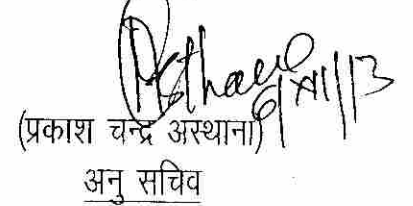 6/XII/13
(प्रकाश चन्द्र अस्थाना)
अनु सचिव